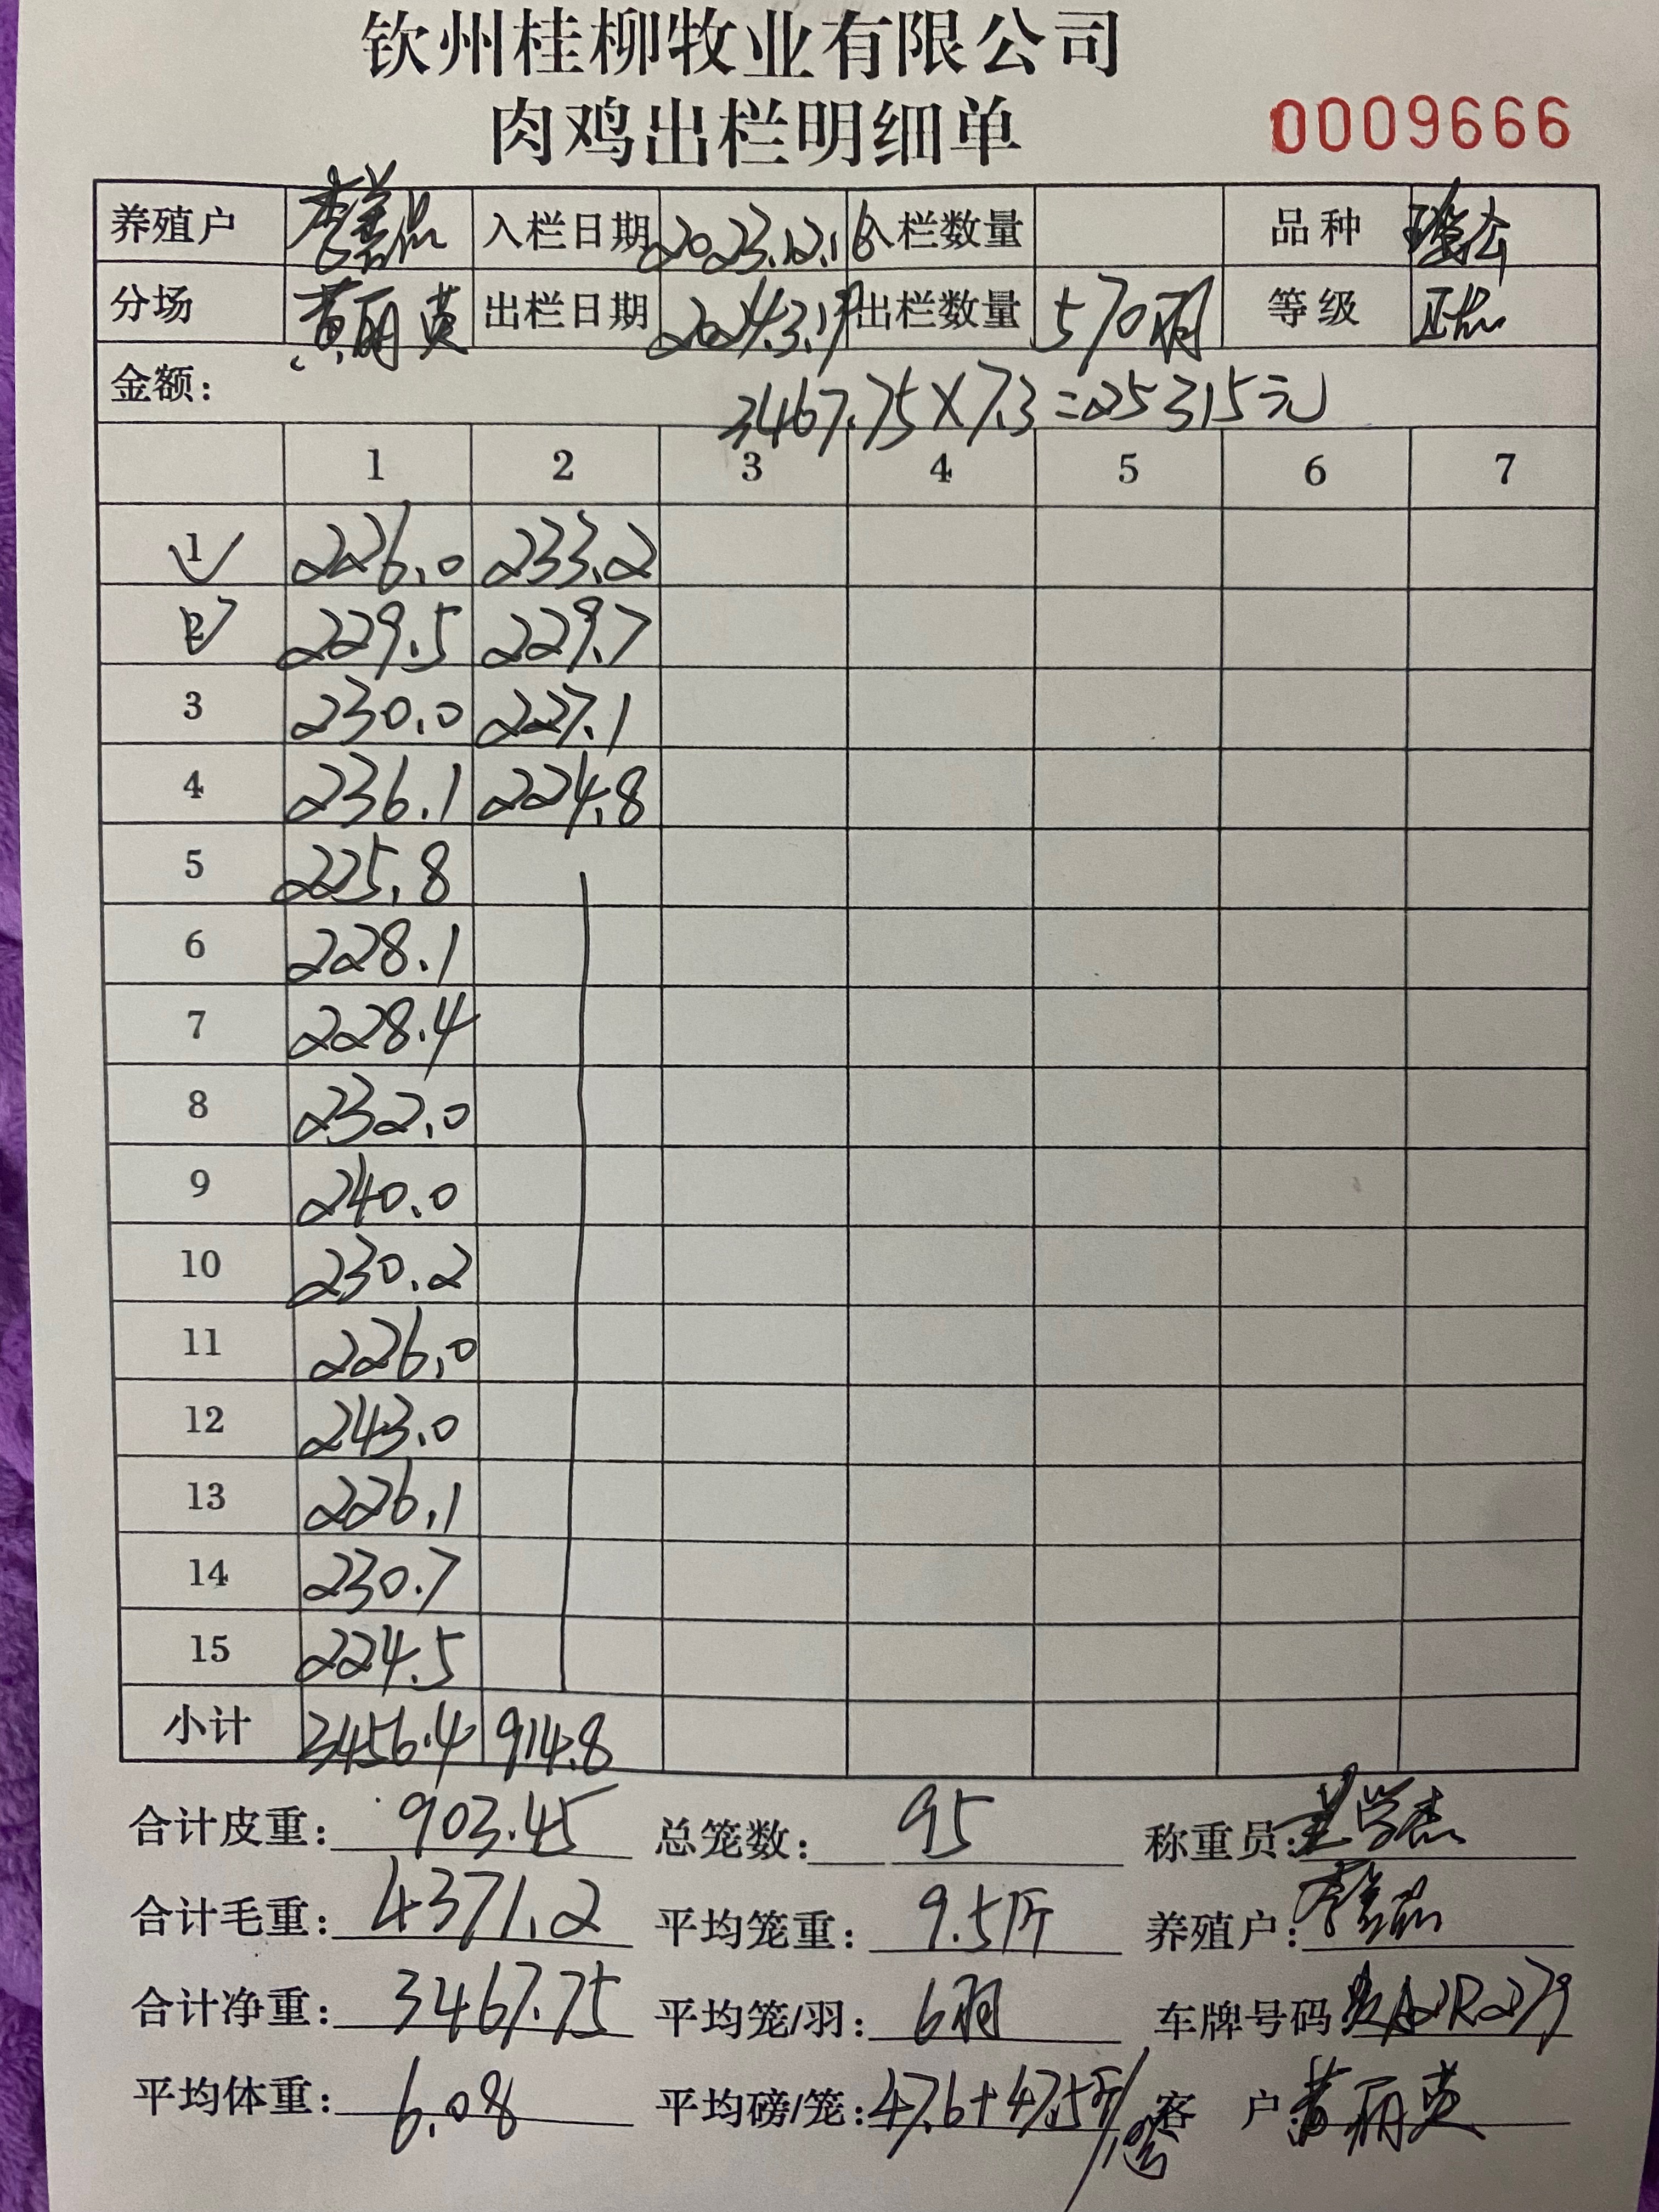 钦州桂柳牧业有限公司
肉鸡出栏明细单 0009666
养殖户 入栏日期 2023.12.16 入栏数量 品种
分场 黄丽英 出栏日期 2024.3.19 出栏数量 570羽 等级 正品
金额： 3467.75×7.3=25315元
1 2 3 4 5 6 7
1 226.0 233.2
2 229.5 229.7
3 230.0 227.1
4 236.1 224.8
5 225.8
6 228.1
7 228.4
8 232.0
9 240.0
10 230.2
11 226.0
12 243.0
13 226.1
14 230.7
15 224.5
小计 3456.4 914.8
合计皮重：903.45 总笼数：95 称重员：
合计毛重：4371.2 平均笼重：9.5斤 养殖户：
合计净重：3467.75 平均笼/羽：6羽 车牌号码
平均体重：6.08 平均磅/笼：47.6+47.5斤/笼 客户：黄丽英